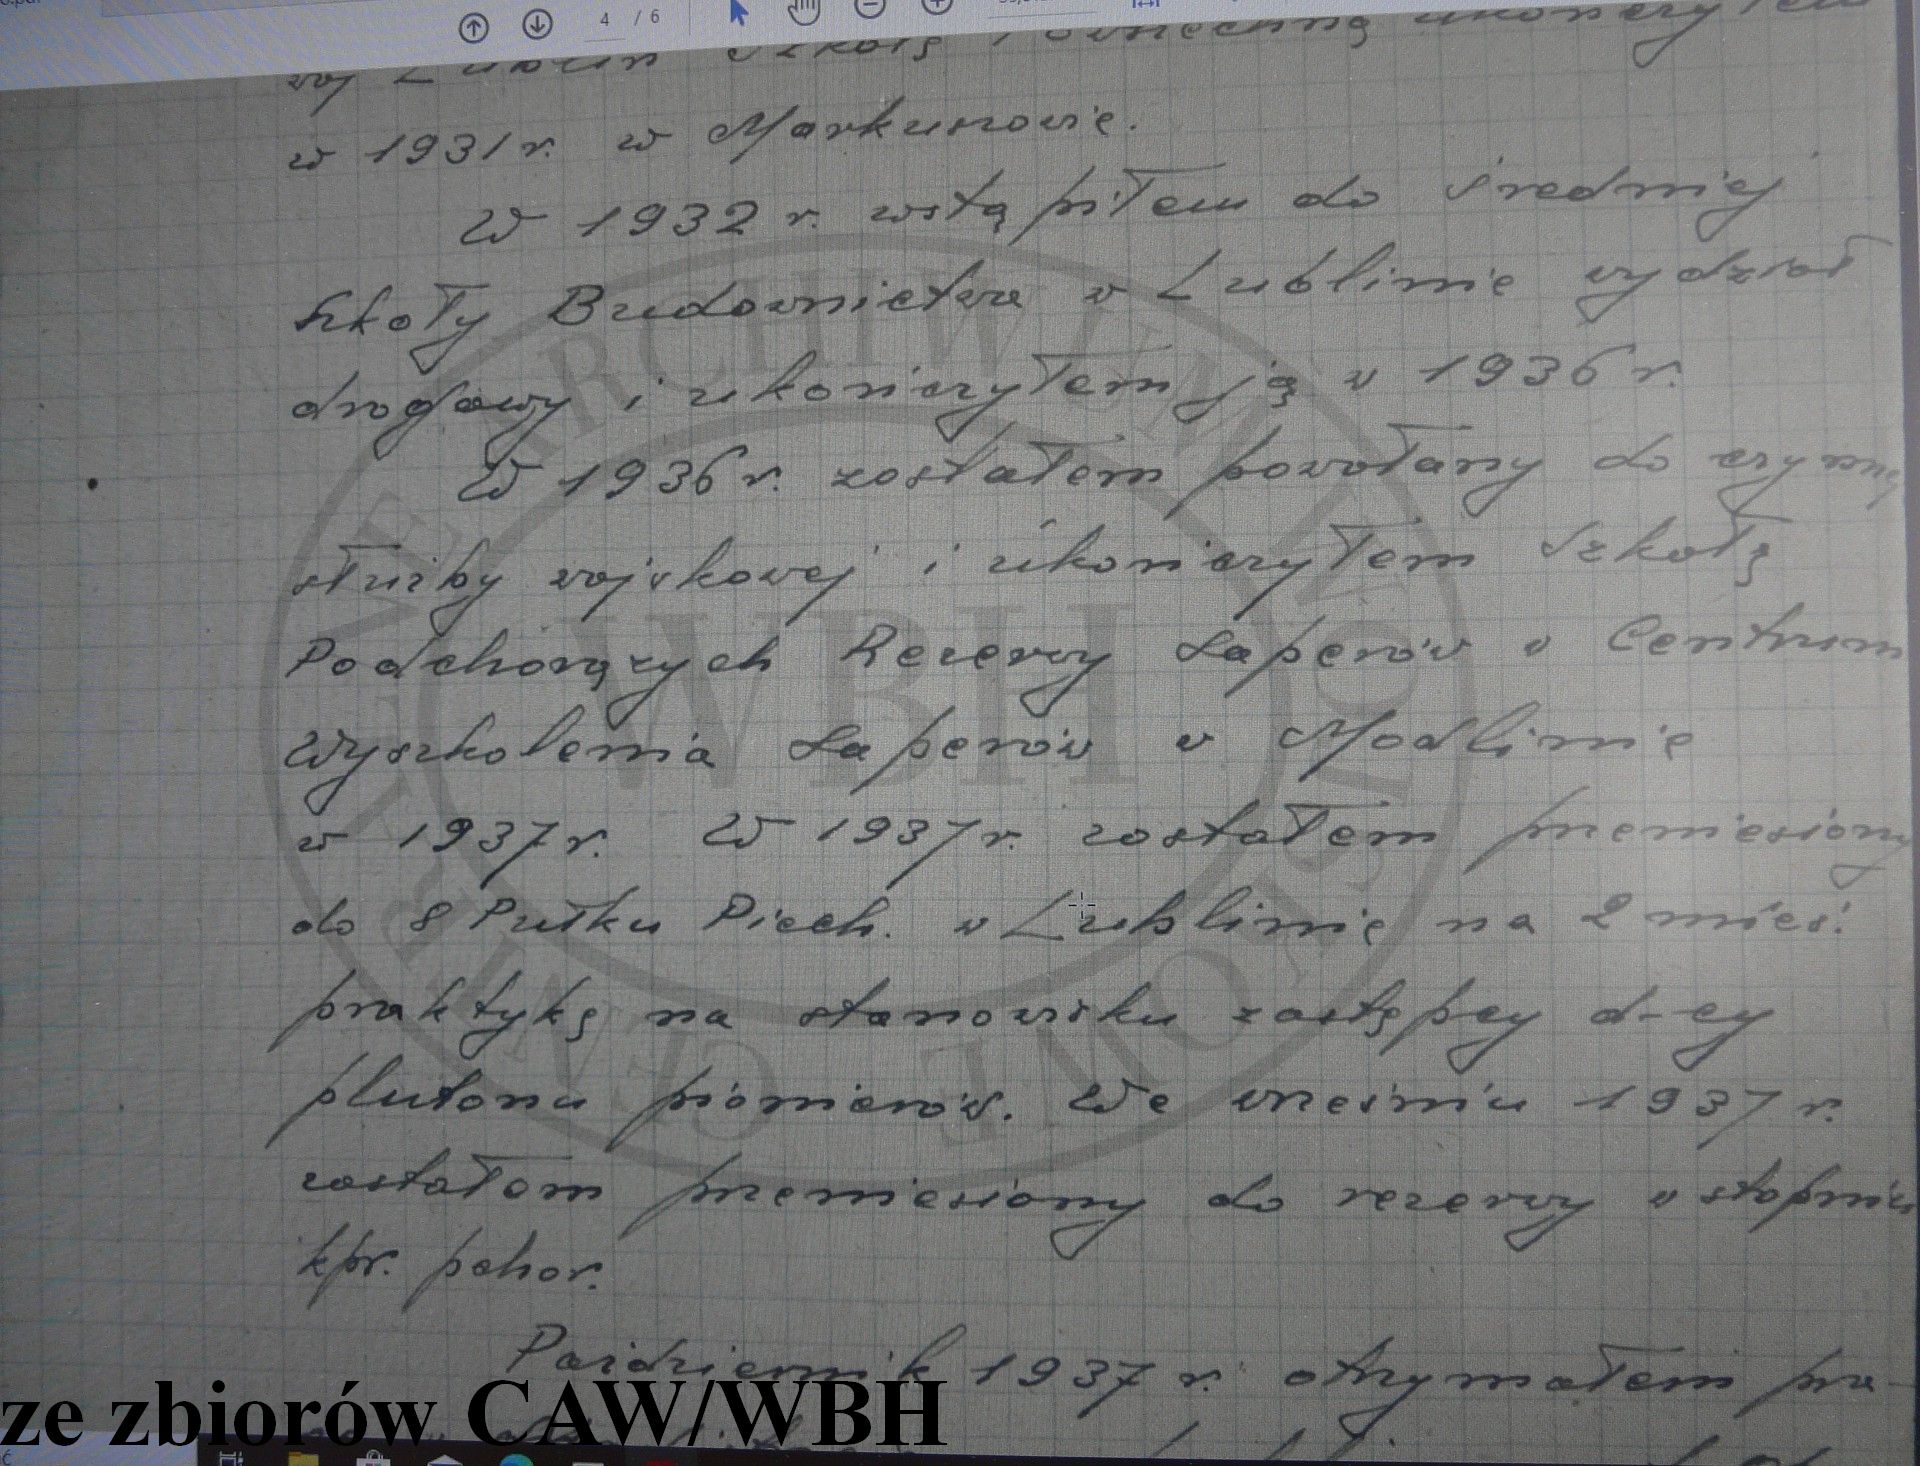 4 / 6
Szkołę Powszechną ukończyłem
w 1931 r. w Markuszowie.
W 1932 r. wstąpiłem do Średniej
Szkoły Budownictwa w Lublinie wydział
drogowy i ukończyłem ją w 1936 r.
W 1936 r. zostałem powołany do czynnej
służby wojskowej i ukończyłem Szkołę
Podchorążych Rezerwy Saperów w Centrum
Wyszkolenia Saperów w Modlinie
w 1937 r. W 1937 r. zostałem przeniesiony
do 8 Pułku Piech. w Lublinie na 2 mieś.
praktykę na stanowisku zastępcy d-cy
plutonu pionierów. We wrześniu 1937 r.
zostałem przeniesiony do rezerwy w stopniu
kpr. pchor.
Październik 1937 r. otrzymałem pra-
ze zbiorów CAW/WBH
CENTRALNE ARCHIWUM WOJSKOWE
WBH